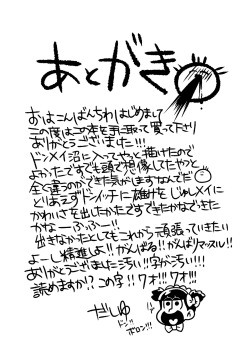 あとがき
おはこんばんちわはじめまして
この度はこの本を手に取って買って下さり
ありがとうございました!!!
ドンメイ沼に入ってやっと描けたので
よかったですでも頭で想像してたやつと
全く違うのができた気がしますなんでだ
とりあえずドンイッチに雄みを じゅしメイに
かわいさを出したかたですできたかなできた
かなーふふー!!
出きなかったとしてもこれから頑張っていきたい
よーし精進しよ!!がんばる!!がんばりマッスル!!
ありがとうございました汚い!!字が汚い!!!
読めますか!?この字!!ワオ!!!ワオ!!!
だしゆ
ドンッ
ボロン!!!